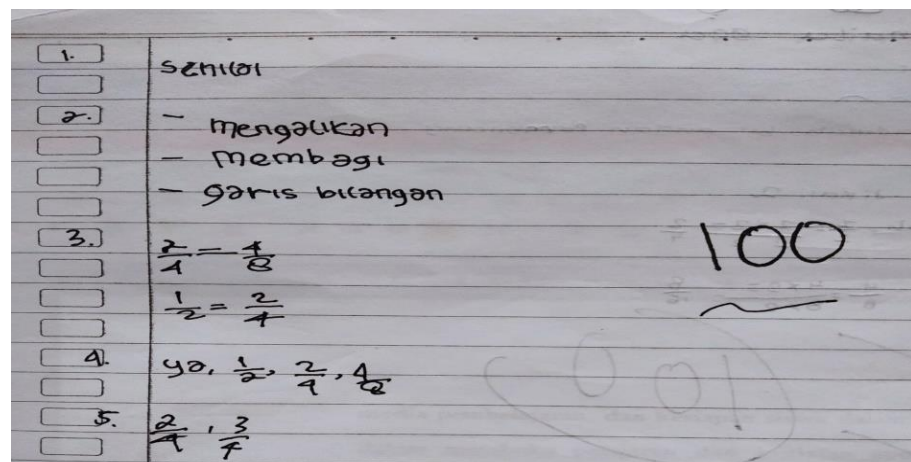 1. senilai
2. - mengalikan
- membagi
- garis bilangan
3. 2/4 = 4/8
100
1/2 = 2/4
4. ya, 1/2, 2/4, 4/8
5. 2/4, 3/4